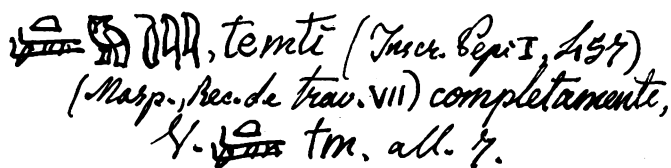 , temti (Inscr. Pepi I, 457)
(Masp., Rec. de trav. VII) completamente,
V. tm, all. 7.